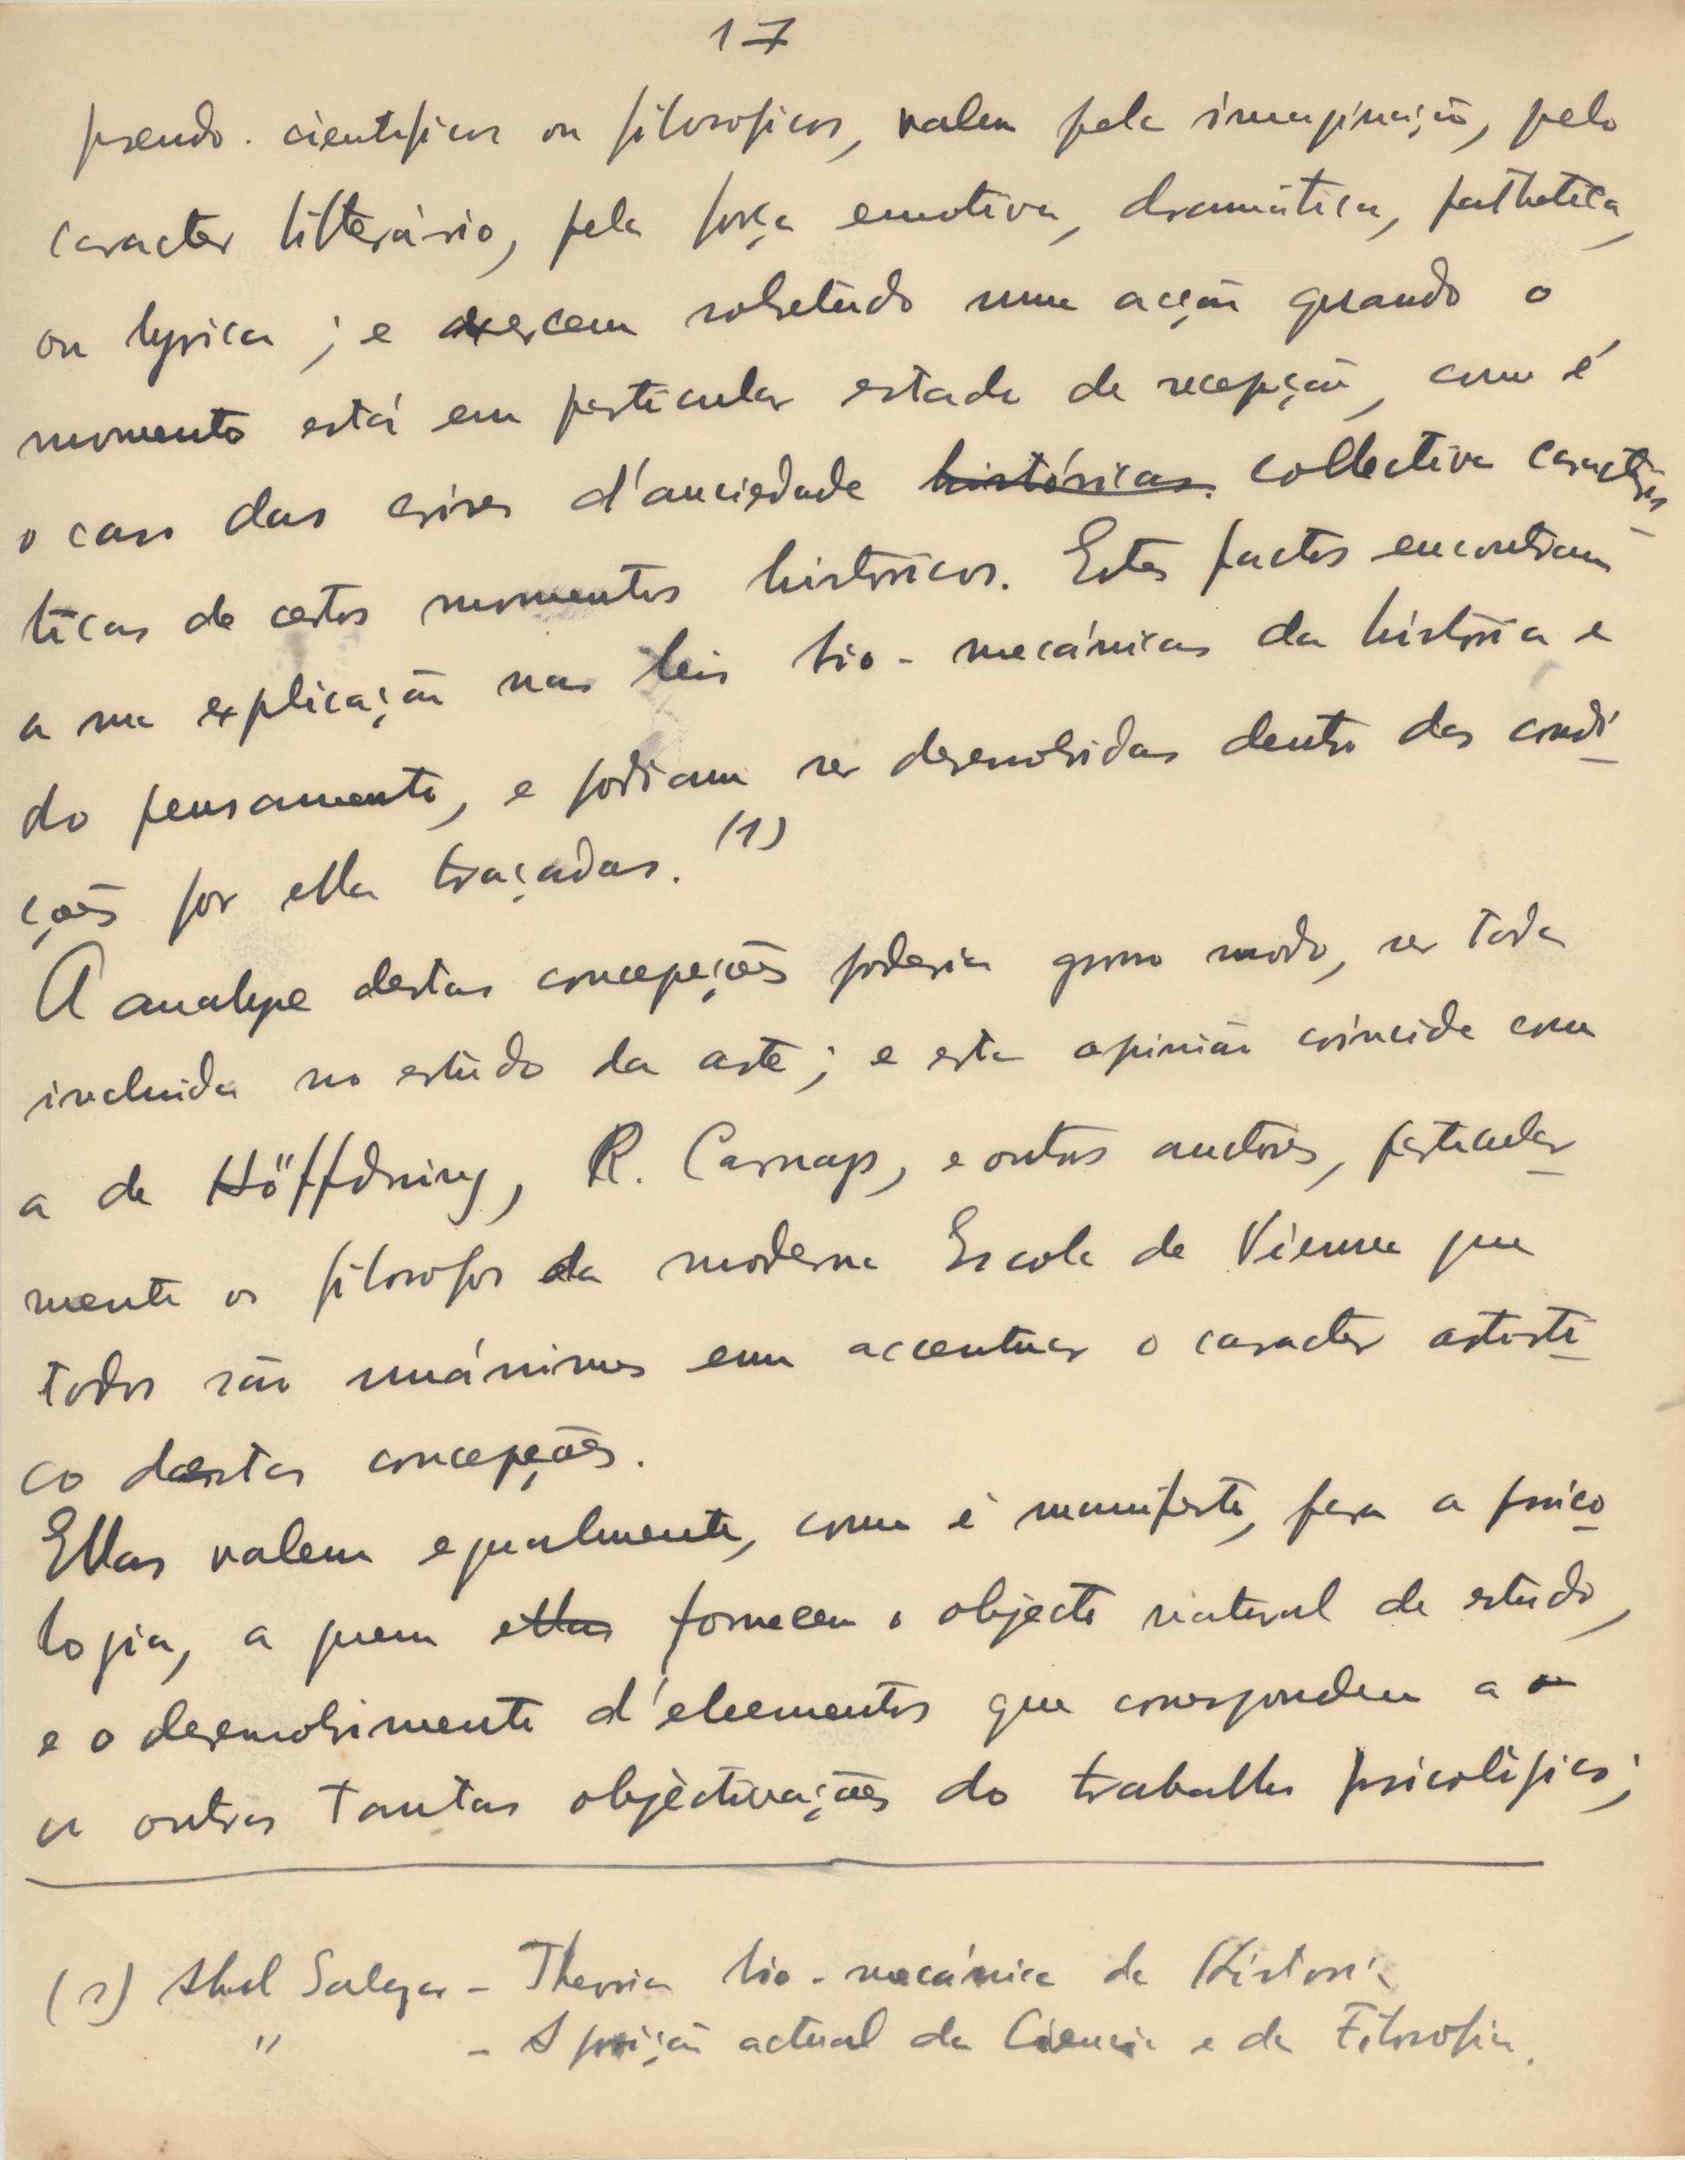 17
pseudo-cientificos ou filosoficos, valem pela imaginação, pelo
caracter litterário, pela força emotiva, dramática, pathetica,
ou lyrica; e exercem sobretudo uma acção quando o
momento está em particular estado de recepção, como é
o caso das crises d'anciedade históricas collectiva caracteris
ticas de certos momentos historicos. Estes factos encontram
a sua explicação nas leis bio-mecánicas da história e
do pensamento, e podiam ser desenvolvidas dentro das condi-
ções por ella traçadas. (1)
A analyse destas concepções poderia grosso modo, ser toda
incluida no estudo da arte; e esta opinião coincide com
a de Höffdning, R. Carnap, e outros auctores, particular-
mente os filosofos da moderna Escola de Vienna que
todos são unánimes em accentuar o caracter artisti-
co destas concepções.
Ellas valem egualmente, como é manifesto, para a psico-
logia, a quem ellas fornecem o objecto natural de estudo,
e o desenvolvimento d'elementos que correspondem a
a outras tantas objectivações do trabalho psicológico;
(1) Abel Salazar - Theoria bio-mecánica da História
" - A posição actual da Ciencia e da Filosofia.